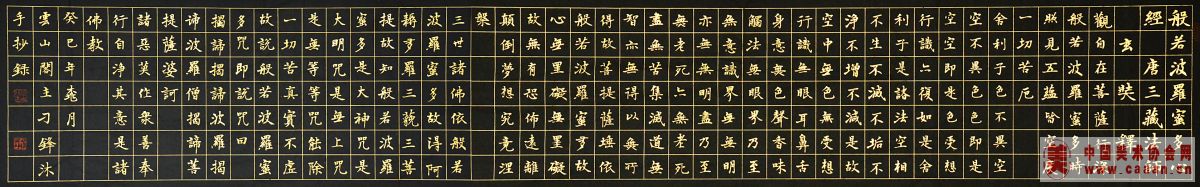 般若波羅蜜多心
經唐三藏法師
玄奘譯
觀自在菩薩行深
般若波羅蜜多時
照見五蘊皆空度
一切苦厄
舍利子色不異空
空不異色色即是
空空即是色受想
行識亦復如是舍
利子是諸法空相
不生不滅不垢不
淨不增不減是故
空中無色無受想
行識無眼耳鼻舌
身意無色聲香味
觸法無眼界乃至
無意識界無無明
亦無無明盡乃至
無老死亦無老死
盡無苦集滅道無
智亦無得以無所
得故菩提薩埵依
般若波羅蜜多故
心無罣礙無罣礙
故無有恐怖遠離
顛倒夢想究竟涅
槃
三世諸佛依般若
波羅蜜多故得阿
耨多羅三藐三菩
提故知般若波羅
蜜多是大神咒是
大明咒是無上咒
是無等等咒能除
一切苦真實不虛
故說般若波羅蜜
多咒即說咒曰
揭諦揭諦波羅揭
諦波羅僧揭諦菩
提薩婆訶
諸惡莫作眾善奉
行自淨其意是諸
佛教
癸巳年月
雲山閣主刁鋒沐
手抄錄
美 中国美术协会网
www.caaan.cn